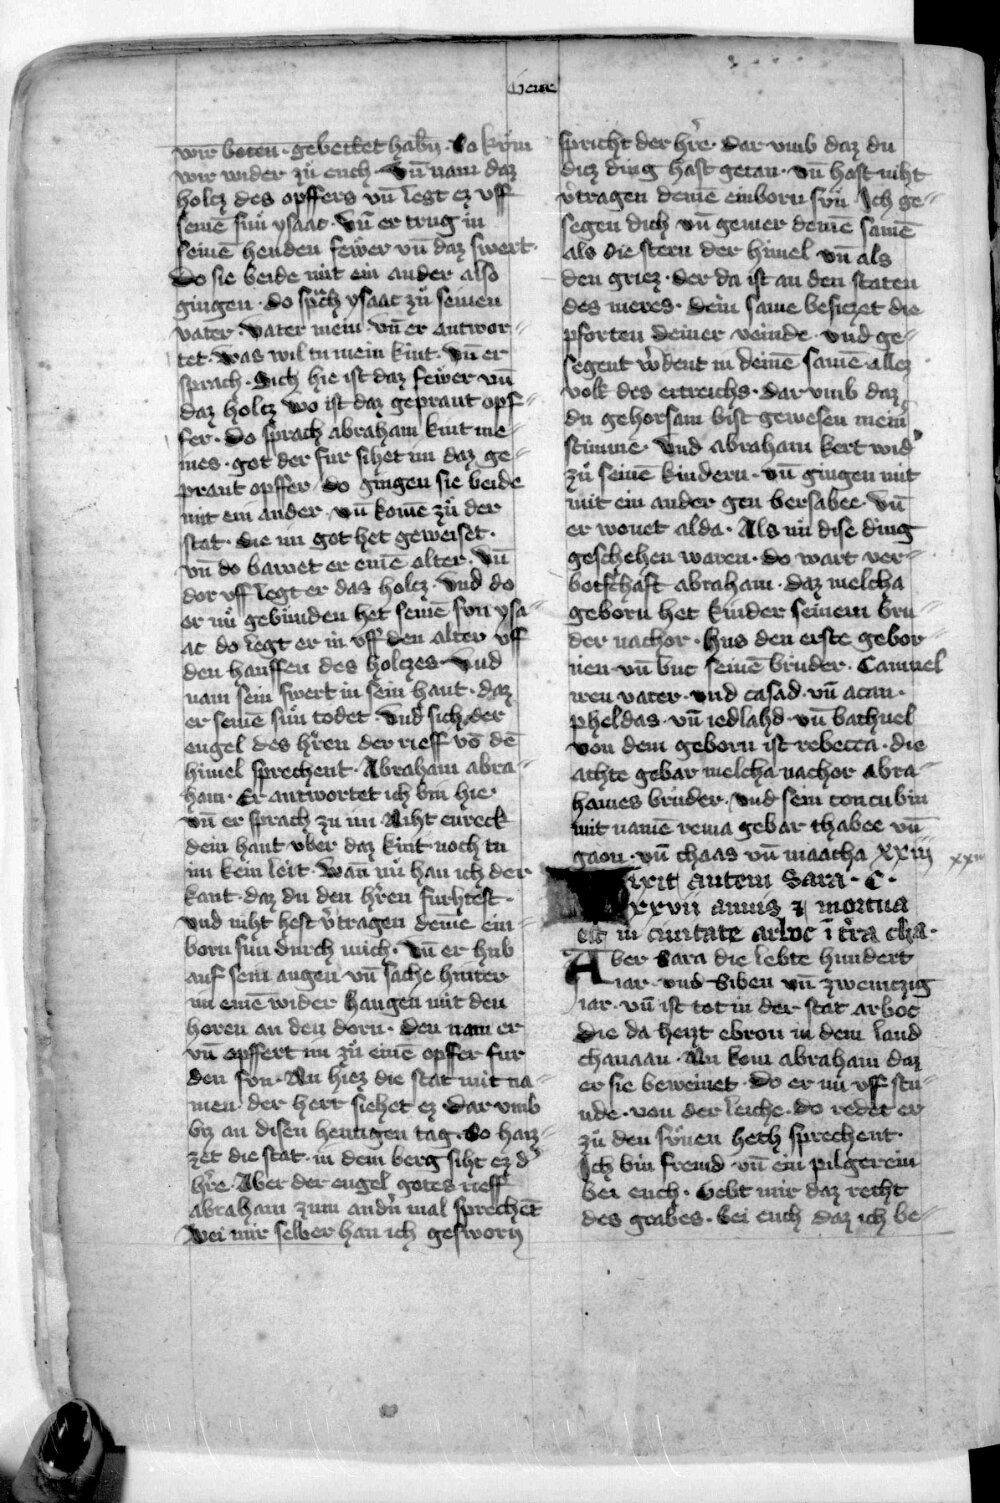 Gene
wir beten · gebettet habn̄ · So kům̄
wir wider zů euch · Vn̄ nam daz
holcz des opffers vn̄ legt ez vff
seinē sun̊ ysaac · Vn̄ er trug in
seinē henden fewer vn̄ daz swert ·
Do sie beide mit ein ander also
gingen · do sp̄ch ysaac zů seinen
vater · Vater mein · Vn̄ er antwor-
tet · Was wil tu mein kint · Vn̄ er
sprach · Sich hie ist daz fewer vn̄
daz holcz wo ist daz geprant opf-
fer · Do sprach abraham kint me-
ines · got der fur sihet im daz ge-
prant opffer · do gingen sie beide
mit ein ander vn̄ kome zů der
stat · die im got het geweiset ·
vn̄ do bawet er einē alter · Vn̄
dor vff legt er das holcz · Vnd do
er nů gebunden het seine sun ysa-
ac do legt er in vff den alter vff
den hauffen des holczes · Vnd
nam sein swert in sein hant · daz
er seinē sun̊ todet · Vnd sich der
engel des hr̄en der rieff vō dē
himel sprechent · Abraham abra-
ham · Er antwortet ich bin hie ·
Vn̄ er sprach zu im Niht enreck
dein hant vber daz kint noch tu
im kein leit · Wan̄ nů han ich der
kant · daz du den hr̄en furhtest ·
Vnd niht hest v̄tragen deinē ein-
born sun durch mich · Vn̄ er hub
auf sein augen vn̄ sache hinter
im einē wider hangen mit den
horen an den dorn · den nam er
vn̄ opffert im zů einē opffer fur
den sun · An hiez die stat mit na-
men · der herr siehet ez · Dar vmb
biz an disen heutigen tag · So haiz-
zet die stat · in dem berg siht ez d'
hr̄e · Aber der engel gotes rieff
abraham zum andn̄ mal sprechēt
Bei mir selber han ich gesworn
spricht der hr̄e · Dar vmb daz du
diez ding hast getan · vn̄ hast niht
v̄tragen deinē einborn sun̊ Ich ge-
segen dich vn̄ gemer deinē samē
als die stern der himel vn̄ als
den griez · der da ist an den staten
des meres · Dein same besiczet die
pforten deiner veinde · vnd ge-
segent w̄dent in deinē samē allez
volk des ertreichs · Dar vmb daz
du gehorsam bist gewesen mein̄
stimme · Vnd abraham kert wid'
zů seinē kindern · vn̄ gingen mit
mit ein ander gen bersabee · Vn̄
er wonet alda · Als nu dise ding
geschehen waren · do wart ver-
botschaft abraham · daz melcha
geborn het kinder seinem bru-
der nachor · Hus den erste gebor-
nen · vn̄ buc seinē bruder · Camuel
iren vater · vnd casad · vn̄ acan ·
pheldas · vn̄ iedlahd · vn̄ bathuel
von dem geborn ist rebecca · die
achte gebar melcha nachor abra-
hames bruder · Vnd sein concubin
mit namē rema gebar thabee vn̄
gaon · vn̄ chaas vn̄ maacha xxiij
xxiij
Vixit autem Sara · C ·
xxvii annis ⁊ mortua
est in ciuitate arboc ī tr̄ra cha ·
Aber Sara die lebte hundert
iar · vnd Siben vn̄ zwenczig
iar · vn̄ ist tot in der stat arboc
die da heizt ebron in dem land
chanaan · An kom abraham daz
er sie beweinet · Do er nu vff stu-
nde · von der leiche · do redet er
zů den sůnen heth sprechent ·
Ich bin fremd · vn̄ ein pilgerein
bei euch · Gebt mir daz recht
des grabes · bei euch daz ich be-